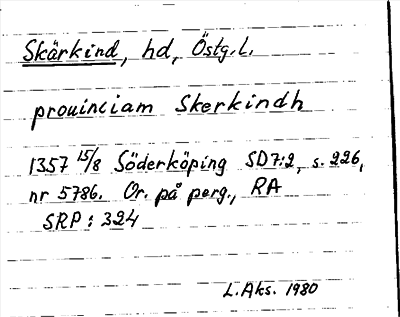 Skärkind, hd, Östg.L.
prouinciam Skerkindh
1357 15/8 Söderköping SD7:2, s. 226,
nr 5786. Or. på perg., RA
SRP: 324
L.Aks. 1980